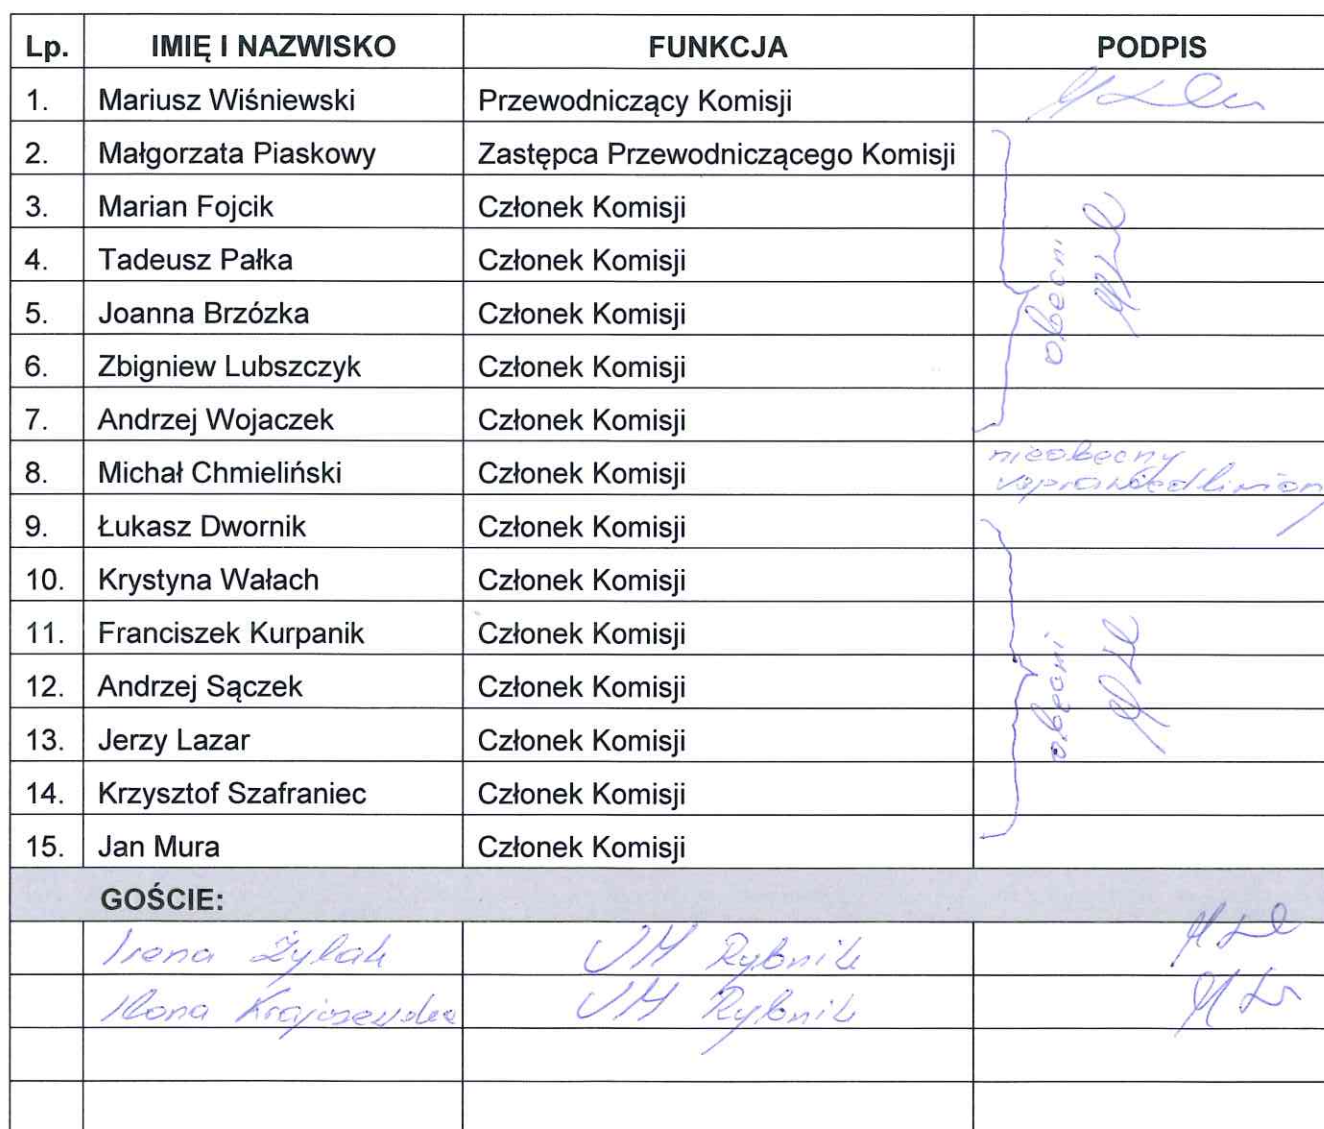 Lp. IMIĘ I NAZWISKO FUNKCJA PODPIS
1. Mariusz Wiśniewski Przewodniczący Komisji
2. Małgorzata Piaskowy Zastępca Przewodniczącego Komisji
3. Marian Fojcik Członek Komisji
4. Tadeusz Pałka Członek Komisji
obecni
5. Joanna Brzózka Członek Komisji
6. Zbigniew Lubszczyk Członek Komisji
7. Andrzej Wojaczek Członek Komisji
8. Michał Chmieliński Członek Komisji nieobecny
9. Łukasz Dwornik Członek Komisji
10. Krystyna Wałach Członek Komisji
11. Franciszek Kurpanik Członek Komisji
12. Andrzej Sączek Członek Komisji obecni
13. Jerzy Lazar Członek Komisji
14. Krzysztof Szafraniec Członek Komisji
15. Jan Mura Członek Komisji
GOŚCIE:
Irena Żylak UM Rybnik
Ilona Krajczewska UM Rybnik